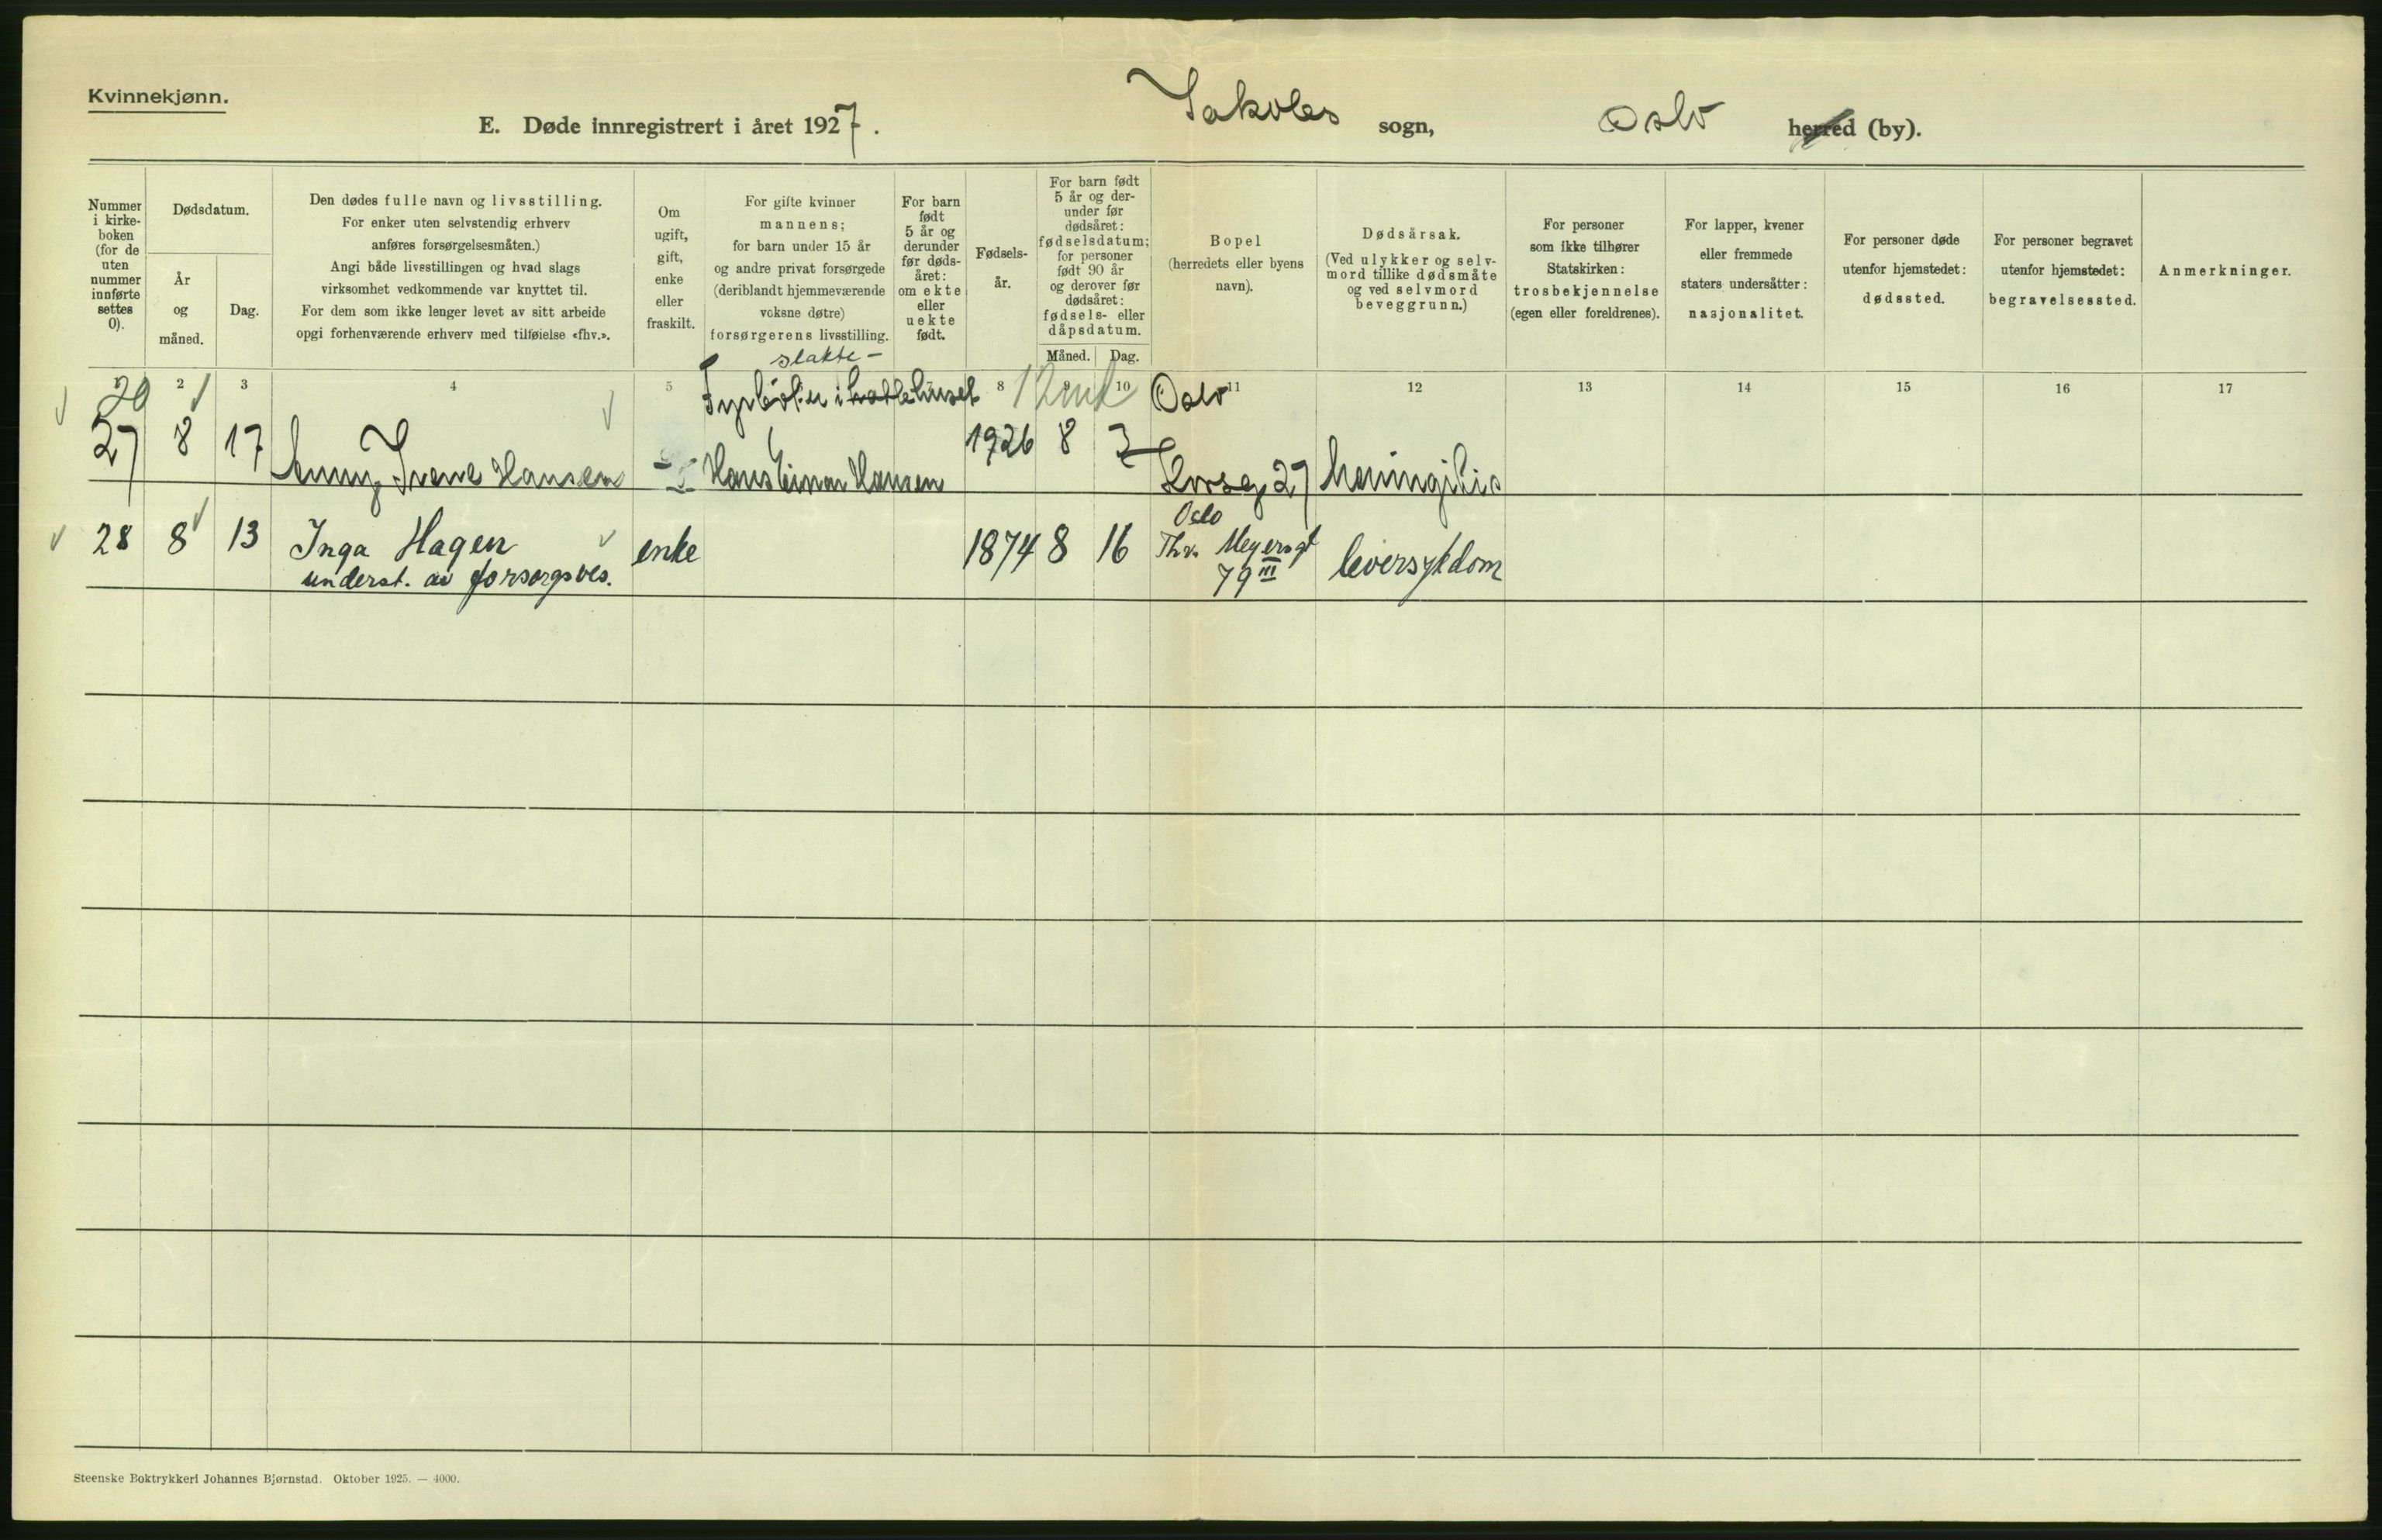 Kvinnekjønn.
E. Døde innregistrert i året 1927. Jakobs sogn, Oslo herred (by).
Nummer i kirkeboken (for de uten nummer innførte settes 0).
Dødsdatum.
År og måned.
Dag.
Den dødes fulle navn og livsstilling.
For enker uten selvstendig erhverv
anføres forsørgelsesmåten.)
Angi både livsstillingen og hvad slags
virksomhet vedkommende var knyttet til.
For dem som ikke lenger levet av sitt arbeide
opgi forhenværende erhverv med tilføielse «fhv.».
Om
ugift,
gift,
enke
eller
fraskilt.
For gifte kvinner
mannens;
for barn under 15 år
og andre privat forsørgede
(deriblandt hjemmeværende
voksne døtre)
forsørgerens livsstilling.
For barn
født
5 år og
derunder
før døds-
året:
om ekte
eller
uekte
født.
Fødsels-
år.
For barn født
5 år og der-
under før
dødsåret:
fødselsdatum;
for personer
født 90 år
og derover før
dødsåret:
fødsels- eller
dåpsdatum.
Måned. Dag.
Bopel
(herredets eller byens
navn).
Dødsårsak.
(Ved ulykker og selv-
mord tillike dødsmåte
og ved selvmord
beveggrunn.)
For personer
som ikke tilhører
Statskirken:
trosbekjennelse
(egen eller foreldrenes).
For lapper, kvener
eller fremmede
staters undersåtter:
nasjonalitet.
For personer døde
utenfor hjemstedet:
dødssted.
For personer begravet
utenfor hjemstedet:
begravelsessted.
Anmerkninger.
2 3 4 5 8 9 10 11 12 13 14 15 16 17
slakte-
Fyrbøter i huset
Oslo
27 8 17 Anny Irene Hansen Hans Einar Hansen 1926 8 3 Korsg 27 Meningitis
28 8 13 Inga Hagen enke 1874 8 16 Oslo
Thv. Meyersgt
79 III leversykdom
underst. av forsorgsves.
Steenske Boktrykkeri Johannes Bjørnstad. Oktober 1925. — 4000.